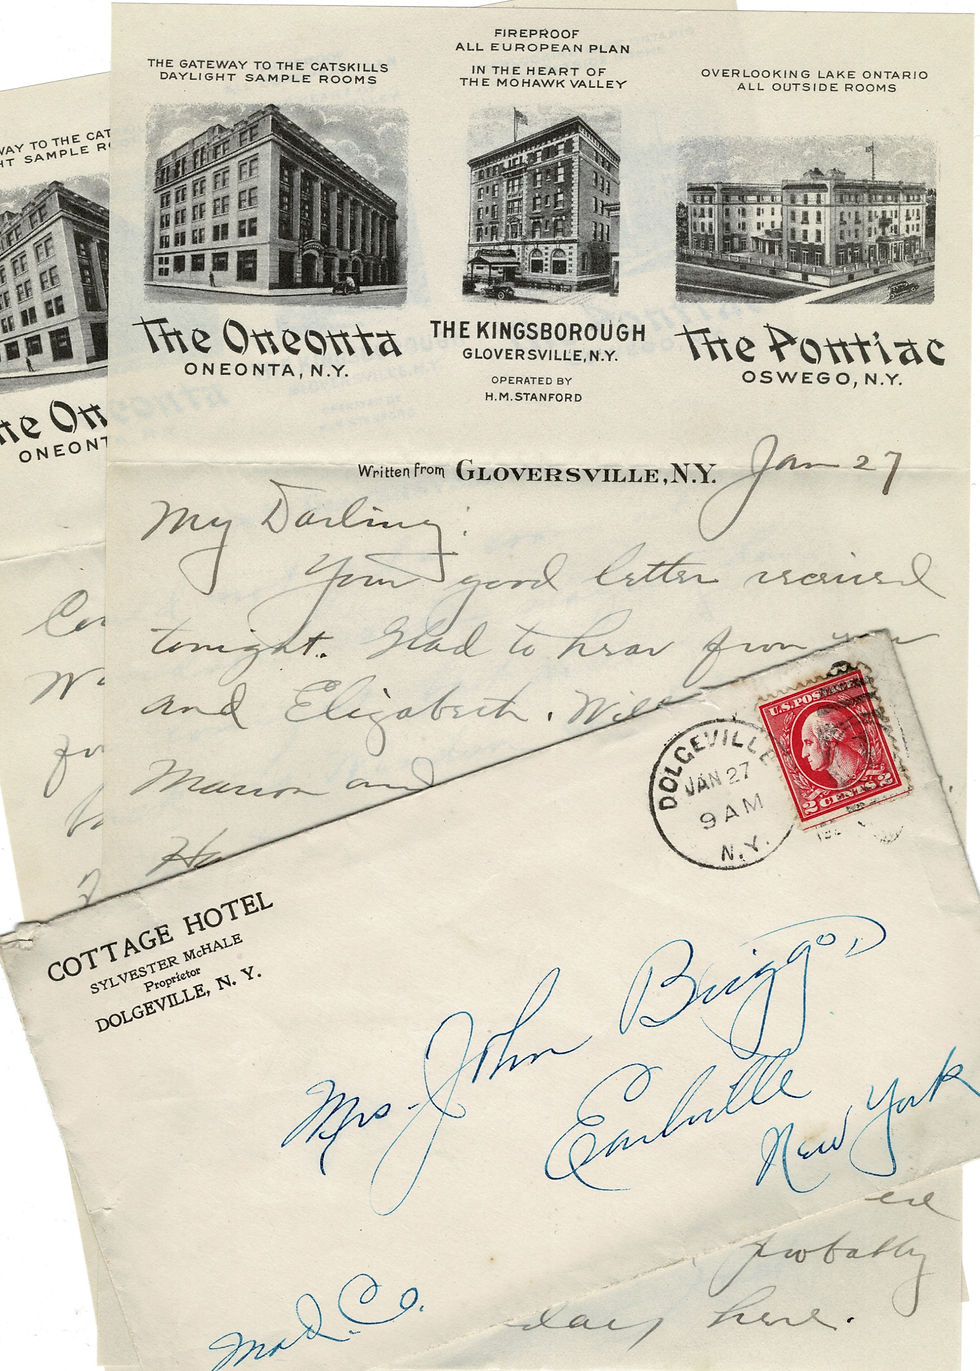 THE GATEWAY TO THE CATSKILLS
DAYLIGHT SAMPLE ROOMS
FIREPROOF
ALL EUROPEAN PLAN
IN THE HEART OF
THE MOHAWK VALLEY
OVERLOOKING LAKE ONTARIO
ALL OUTSIDE ROOMS
The Oneonta
ONEONTA, N.Y.
THE KINGSBOROUGH
GLOVERSVILLE, N.Y.
OPERATED BY
H.M. STANFORD
The Pontiac
OSWEGO, N.Y.
WAY TO THE CAT
HT SAMPLE R
he On
ONEONT
Written from GLOVERSVILLE, N.Y. Jan 27
My Darling:
Your good letter received
tonight. Glad to hear from you
and Elizabeth. Will
Marion and
Ha
COTTAGE HOTEL
SYLVESTER McHALE
Proprietor
DOLGEVILLE, N. Y.
DOLGEVILLE
JAN 27
9 AM
N.Y.
U.S. POSTAGE
2 CENTS 2
Mrs. John Briggs
Earlville
New York
Mad. Co.
probably
day here.